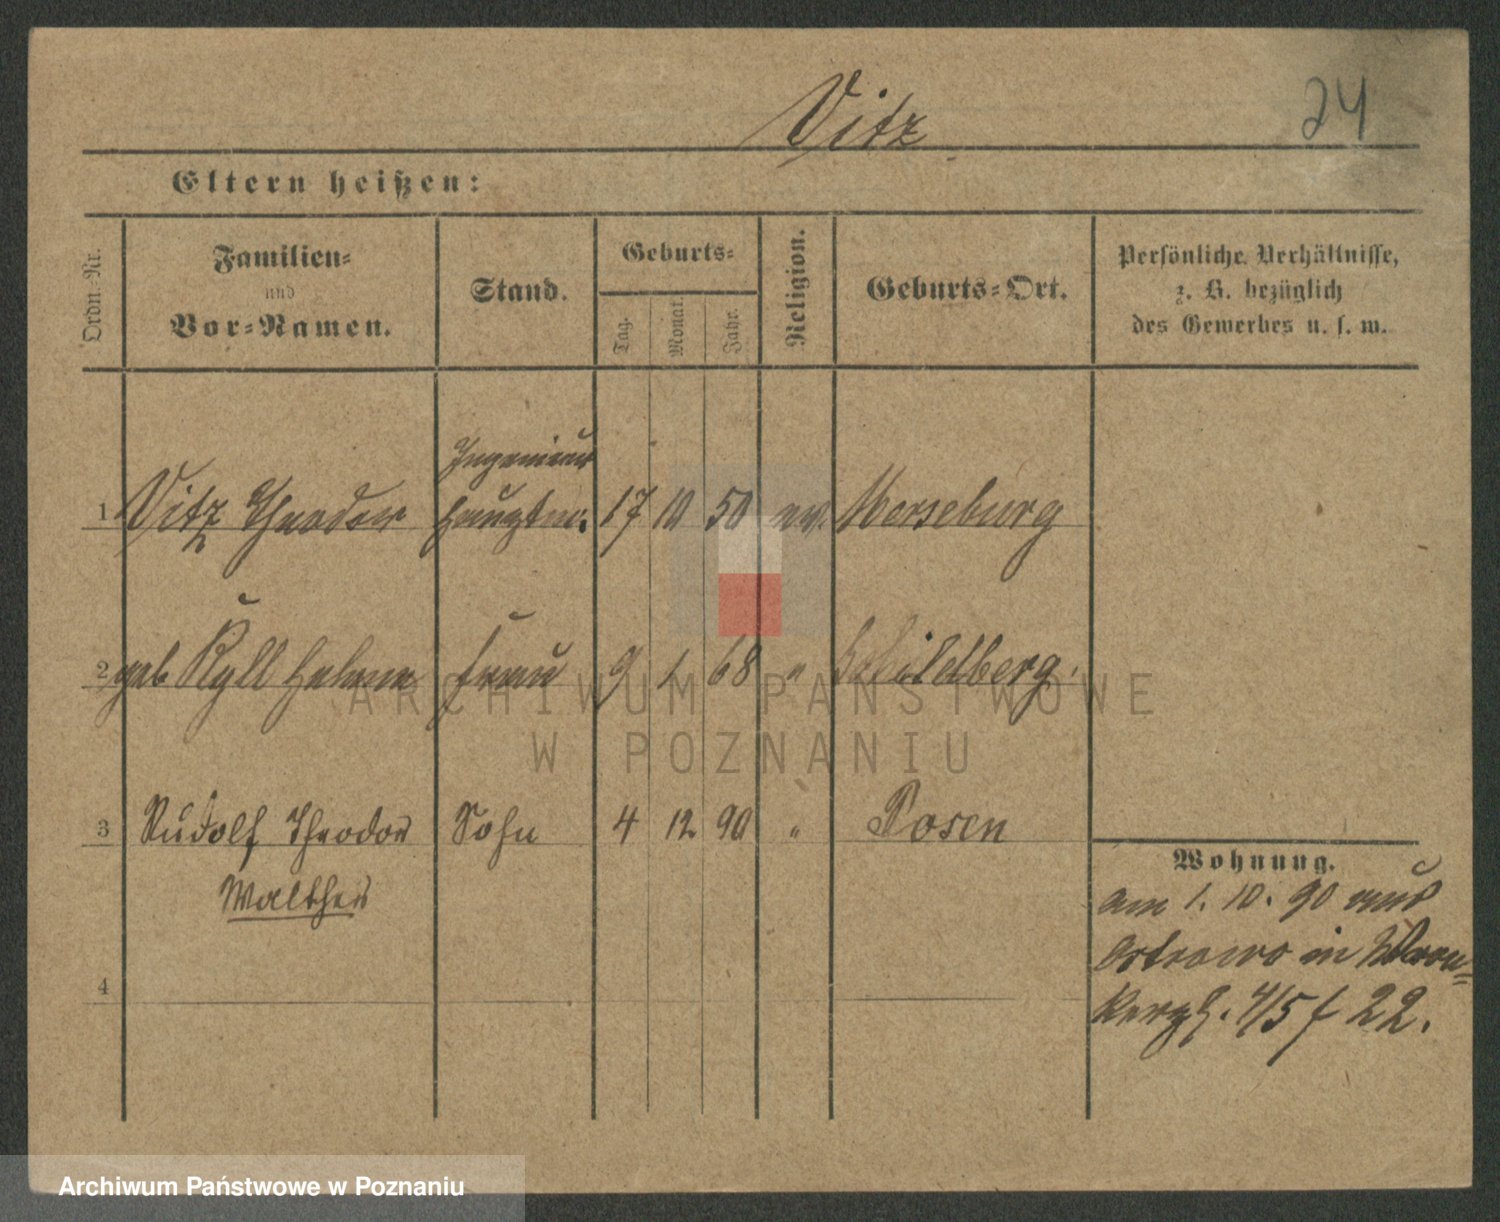 Vitz
24
Eltern heißen:
Ordn.-Nr.
Familien-
und
Vor-Namen.
Stand.
Geburts-
Tag.
Monat.
Jahr.
Religion.
Geburts-Ort.
Persönliche Verhältnisse,
z. B. bezüglich
des Gewerbes u. s. w.
Ingenieur
1 Vitz Theodor Hauptm. 17 10 50 ev. Merseburg
2 geb Kyll Helene Frau 9 1 68 " Schildberg.
3 Rudolf Theodor Sohn 4 12 90 " Posen
Walther
4
Wohnung.
am 1. 10. 90 aus
Ostrowo in Wron-
kerpl. 4/5 f 22.
ARCHIWUM PAŃSTWOWE
W POZNANIU
Archiwum Państwowe w Poznaniu